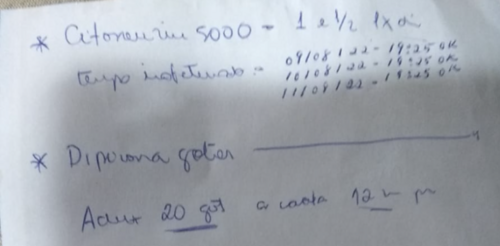 * Citoneurin 5000 - 1 e 1/2 1x di
tempo indeterm :- 09/08/22 - 19:25 OK
10/08/22 - 19:25 OK
11/08/22 - 19:25 OK
* Dipirona gotas
20 got a cada 12